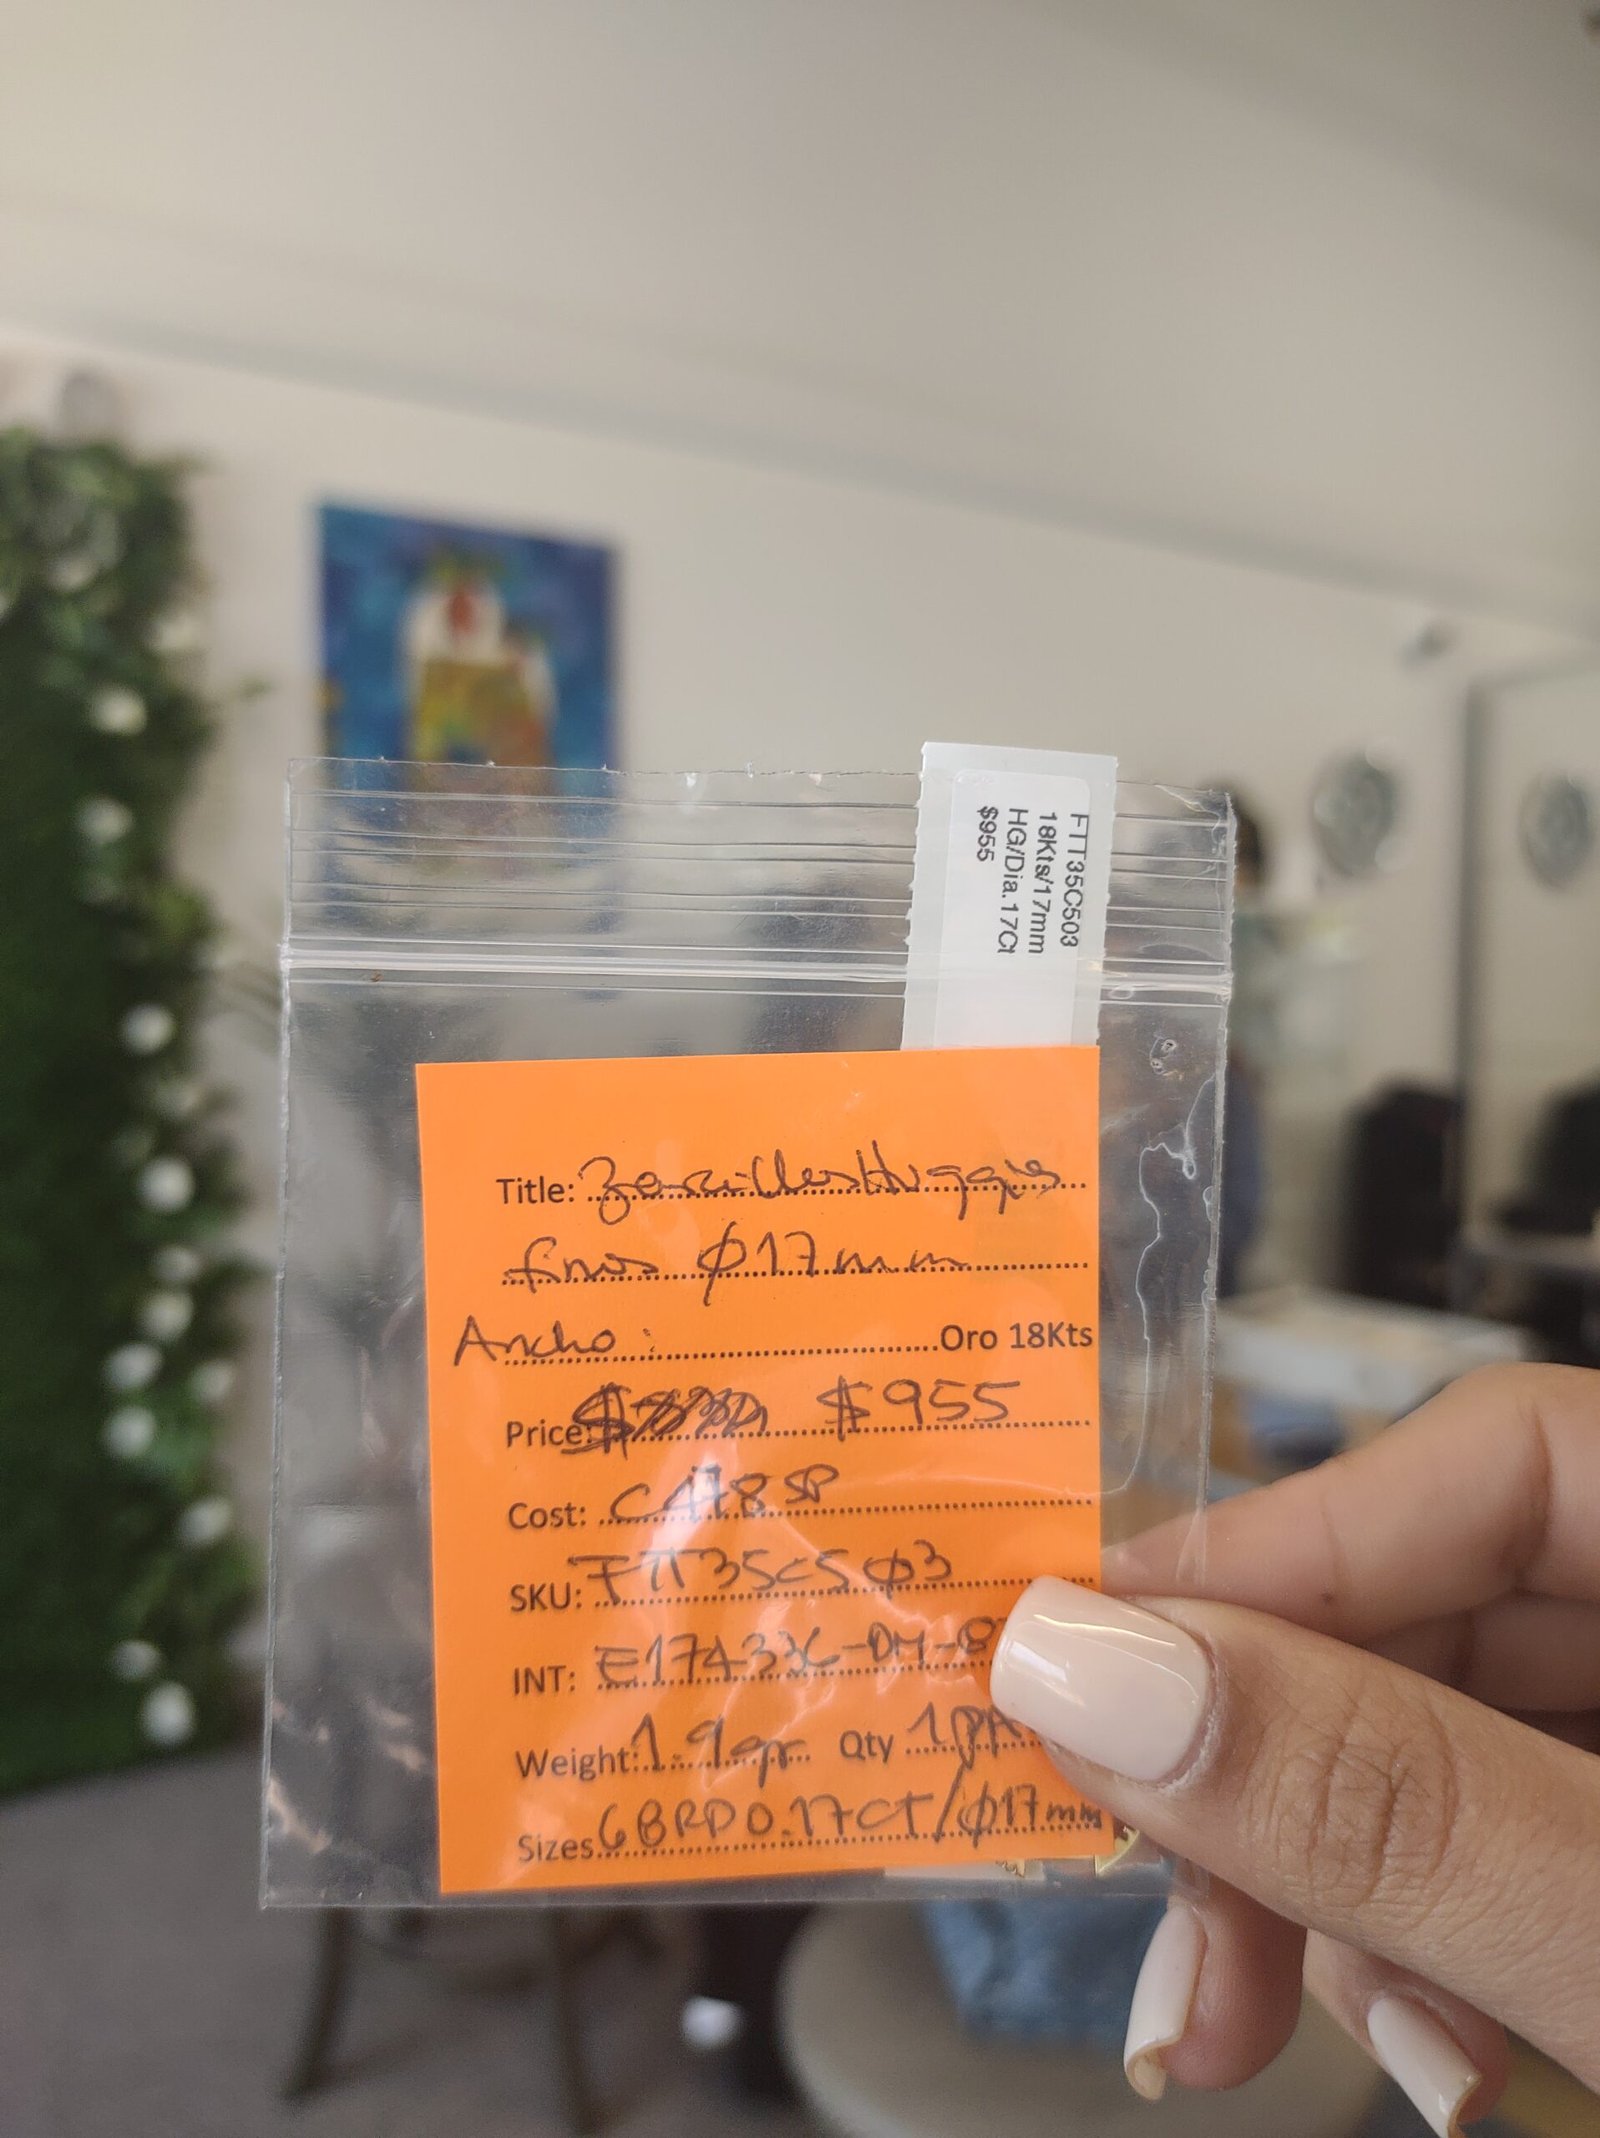 FTT35C503
18Kts/17mm
HG/Dia.17Ct
$955
Title: Zarcillos Huggies
finos Ø17mm
Ancho: Oro 18Kts
Price: $955
Cost: C478 SP
SKU: FTT35C5Ø3
INT: E174336-DM-8
Weight: 1.9gr Qty 1 PA
Sizes 6 BRD 0.17CT/Ø17mm